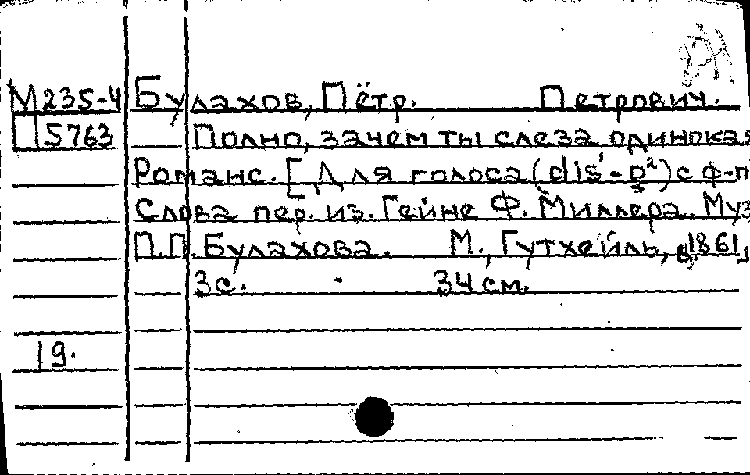 М235-4 Булахов, Пётр. Петрович.
П5763 Полно, зачем ты слеза одинокая
Романс. [Для голоса (dis'-g²) с ф-п
Слова пер. из. Гейне Ф. Миллера. Муз
П.П. Булахова. М., Гутхейль, в1861,
3с. 34 см.
19.